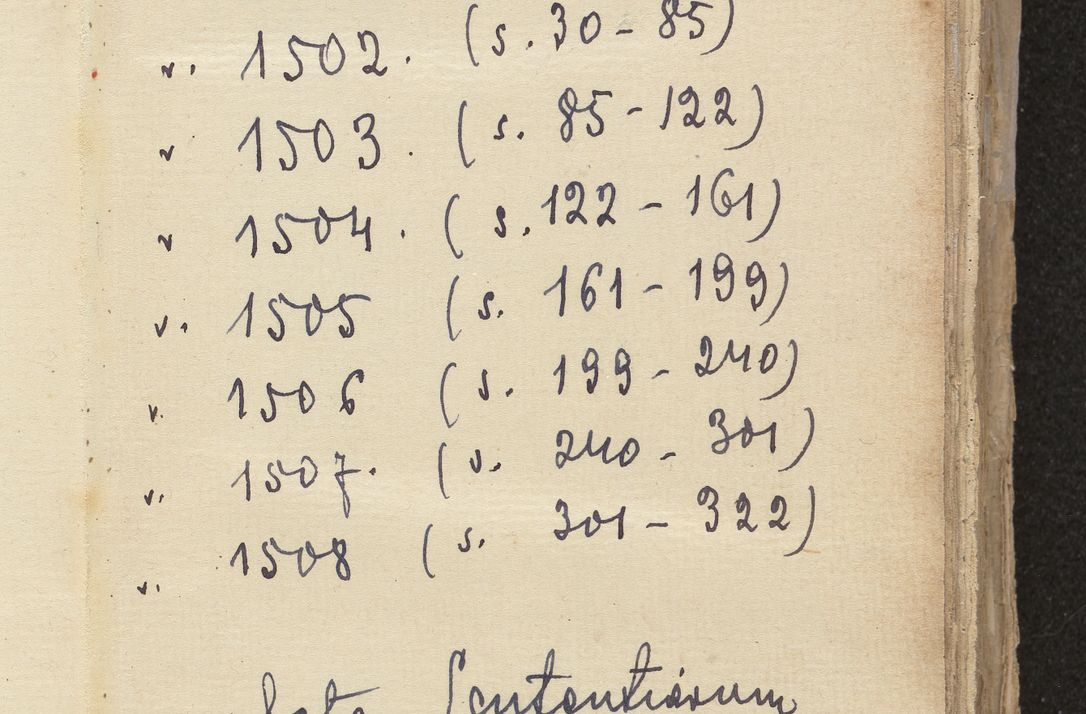 v. 1502. (s. 30-85)
v 1503. (s. 85-122)
v 1504. (s. 122-161)
v. 1505 (s. 161-199)
v. 1506 (s. 199-240)
v. 1507. (s. 240-301)
v. 1508 (s. 301-322)
Sententiarum